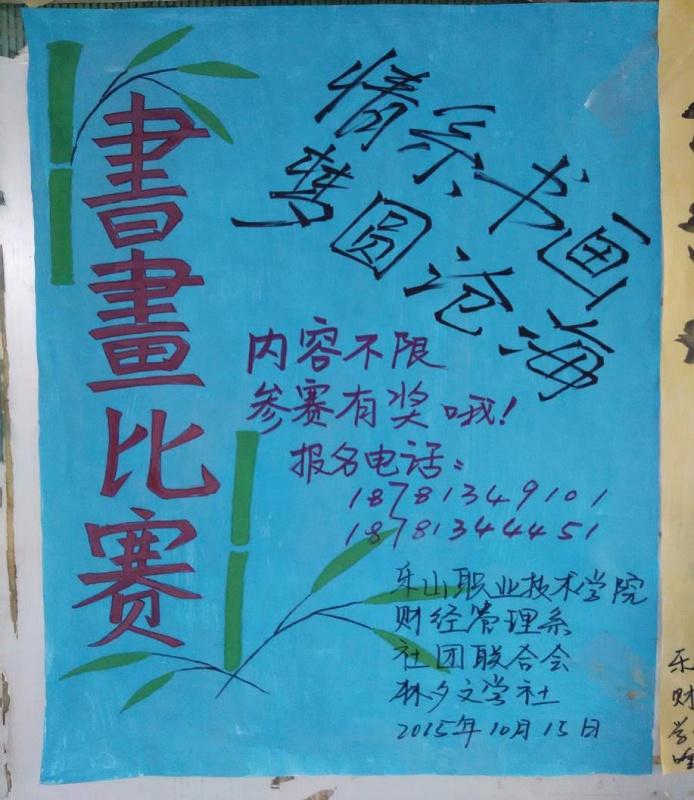 書畫比赛
情系书画
梦圆沧海
内容不限
参赛有奖哦！
报名电话：
18781349101
18781344451
乐山职业技术学院
财经管理系
社团联合会
林夕文学社
2015年10月15日
乐
财
学